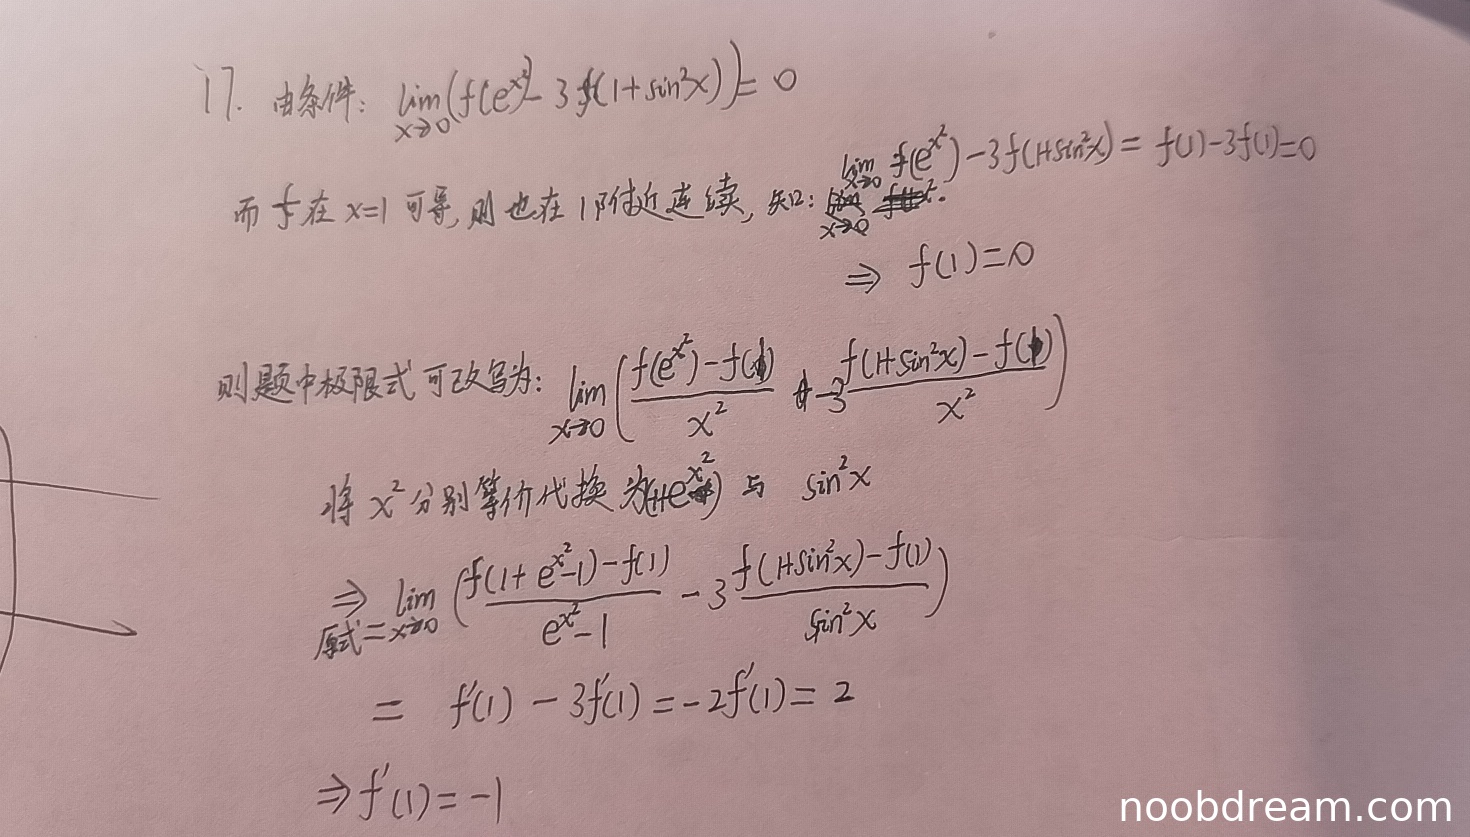 17. 由条件: lim x→0 (f(e^{x^2}) - 3f(1+sin²x)) = 0
而 f 在 x=1 可导, 则也在 1 附近连续, 知: lim x→0 f(e^{x^2}) - 3f(1+sin²x) = f(1) - 3f(1) = 0
⇒ f(1) = 0
则题中极限式可改写为: lim x→0 ( (f(e^{x^2}) - f(1)) / x² - 3 (f(1+sin²x) - f(1)) / x² )
将 x² 分别等价代换为 与 sin²x
⇒ 原式 = lim x→0 ( (f(1+e^{x^2}-1) - f(1)) / (e^{x^2}-1) - 3 (f(1+sin²x) - f(1)) / sin²x )
= f'(1) - 3f'(1) = -2f'(1) = 2
⇒ f'(1) = -1
noobdream.com